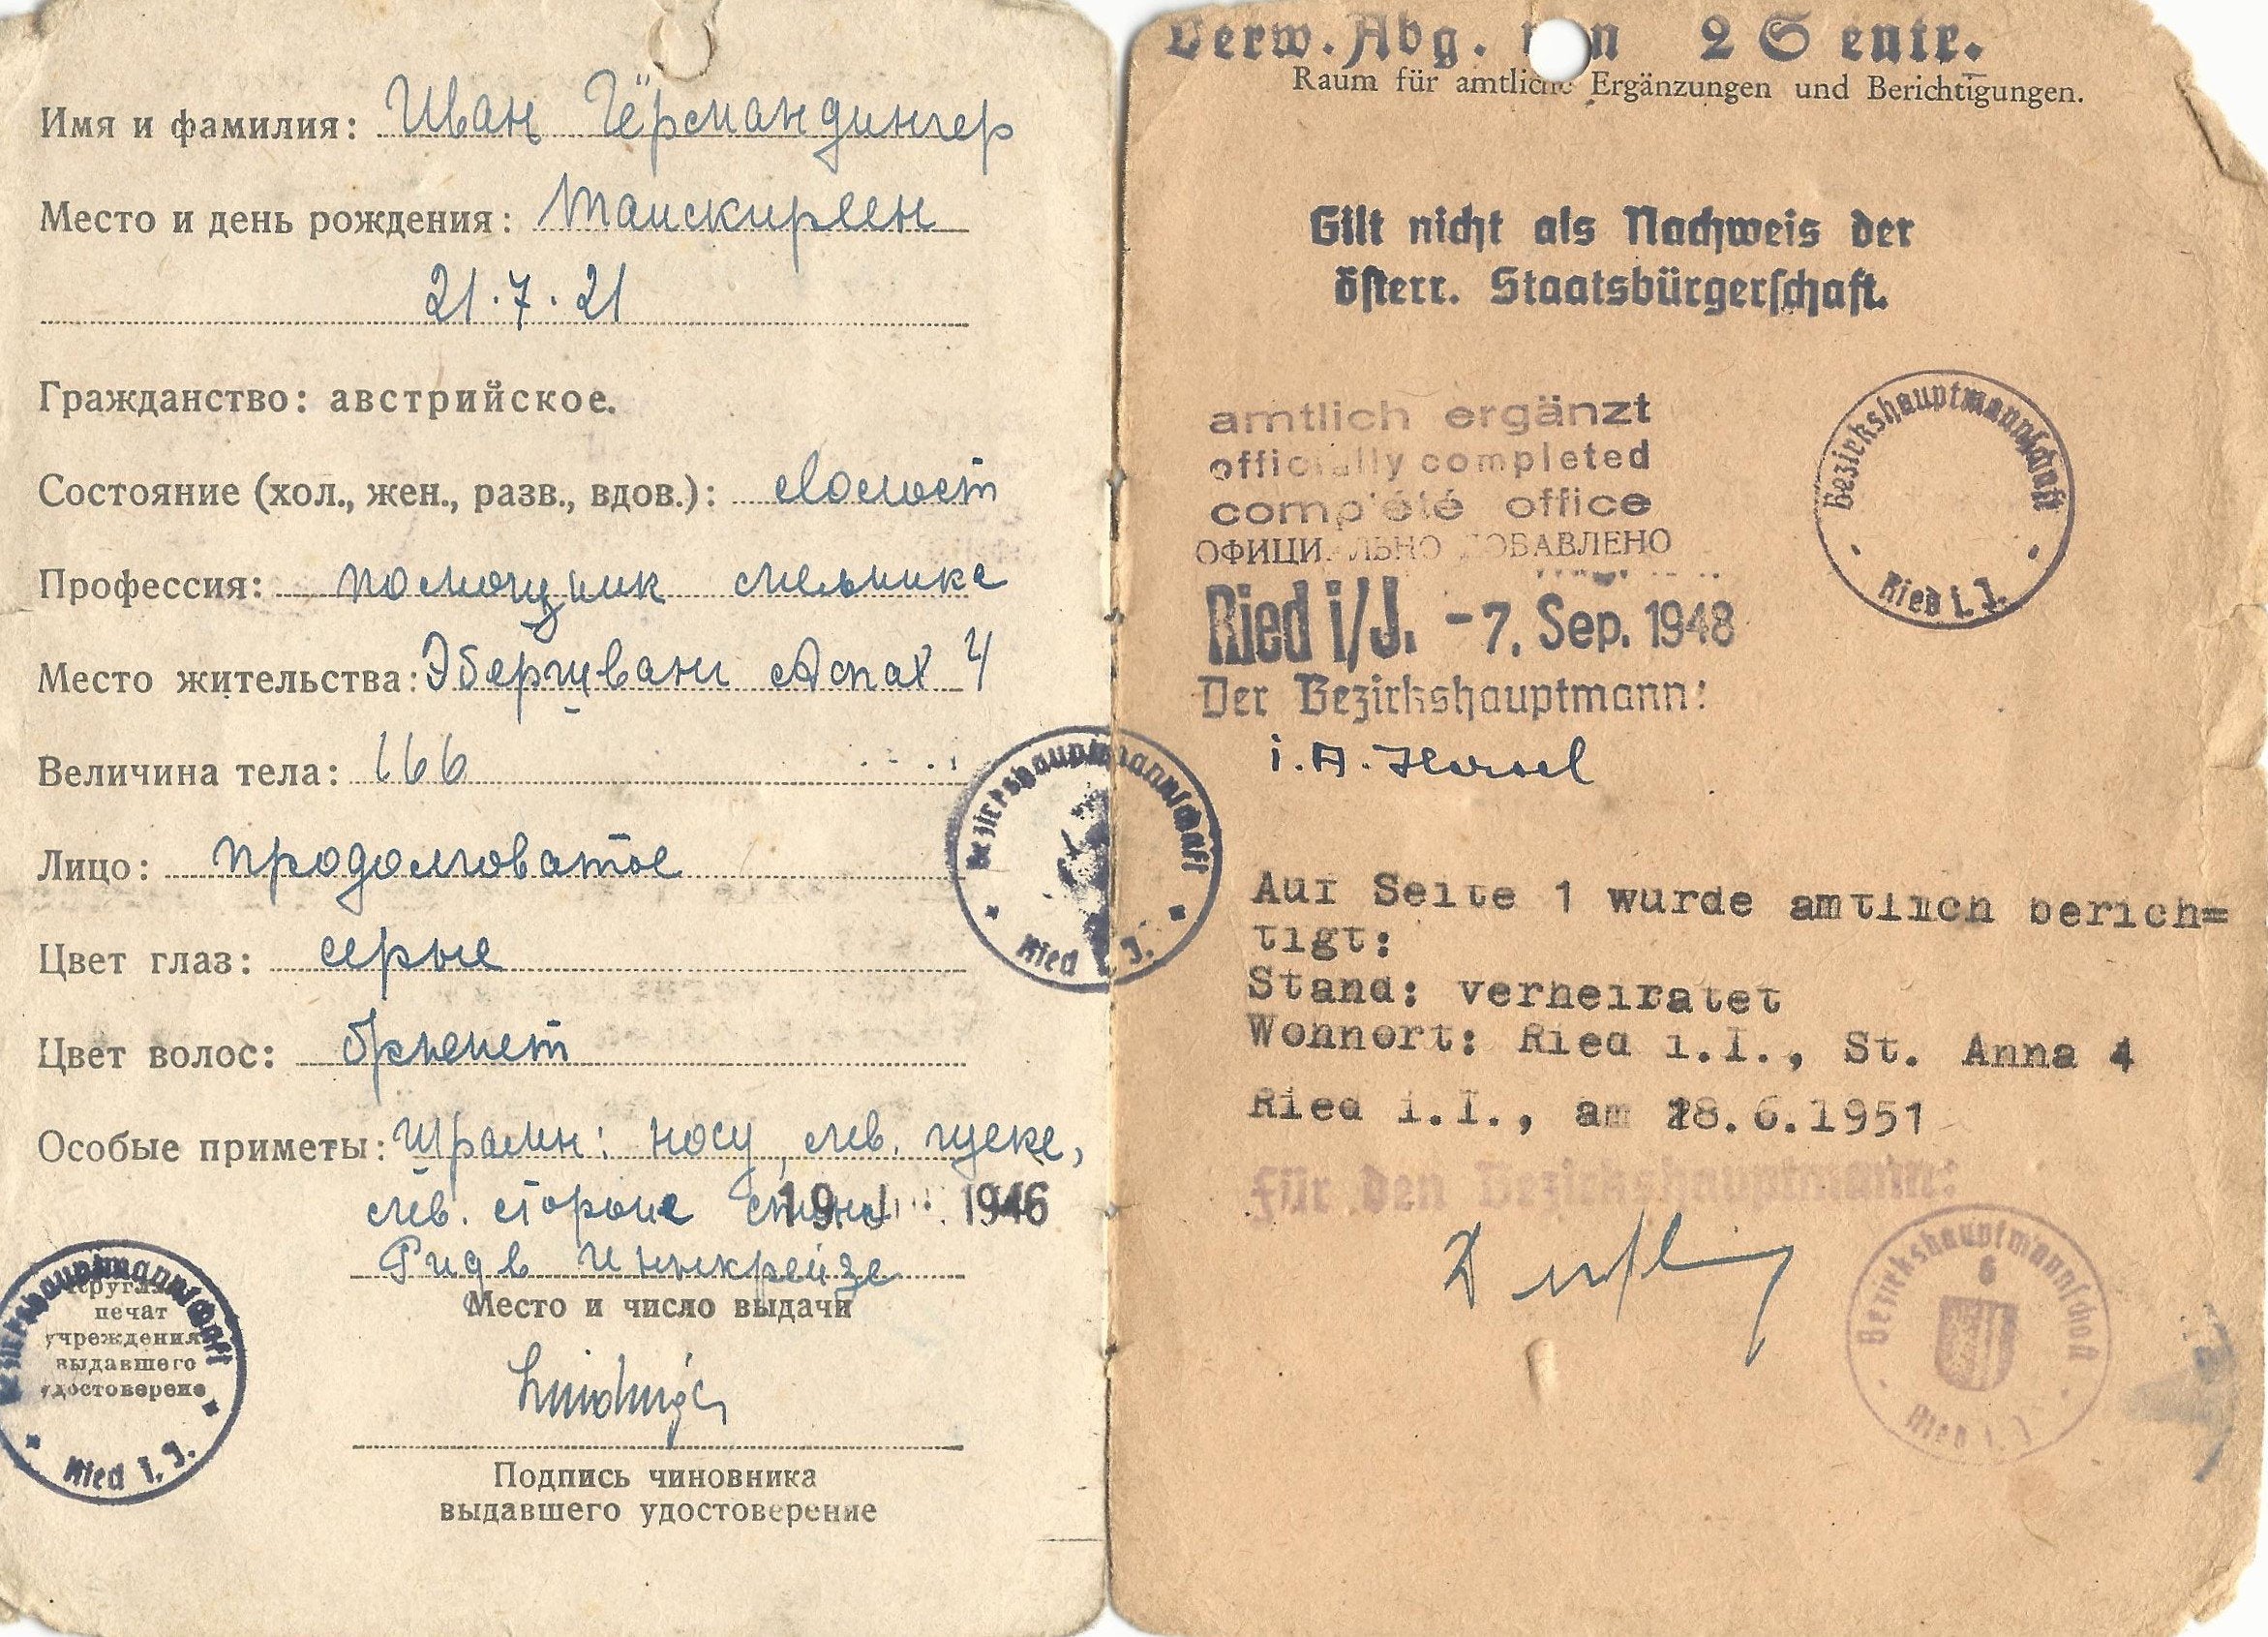 Имя и фамилия: Иван Гёрмандингер
Место и день рождения: Таискирхен
21.7.21
Гражданство: австрийское.
Состояние (хол., жен., разв., вдов.): холост
Профессия: помощник мельника
Место жительства: Эбершванг Аспах 4
Величина тела: 166
Лицо: продолговатое
Цвет глаз: серые
Цвет волос: брюнет
Особые приметы: Шрамы: носу, лев. щеке,
лев. стороне
19. 1946
Рид в Иннкрейзе
Место и число выдачи
Круглая
печат
учреждения
выдавшего
удостоверене
Bezirkshauptmannschaft
Ried i. J.
Подпись чиновника
выдавшего удостоверение
Bezirkshauptmannschaft
Ried i. J.
Verw. Abg. von 2 S entr.
Raum für amtliche Ergänzungen und Berichtigungen.
Gilt nicht als Nachweis der
österr. Staatsbürgerschaft.
amtlich ergänzt
officially completed
complété office
ОФИЦИАЛЬНО ДОБАВЛЕНО
Ried i/J. -7. Sep. 1948
Der Bezirkshauptmann:
i. A.
Bezirkshauptmannschaft
Ried i. J.
Auf Seite 1 wurde amtlich berich=
tigt:
Stand: verheiratet
Wohnort: Ried i.I., St. Anna 4
Ried i.I., am 28.6.1951
Für den Bezirkshauptmann:
Bezirkshauptmannschaft
6
Ried i. J.